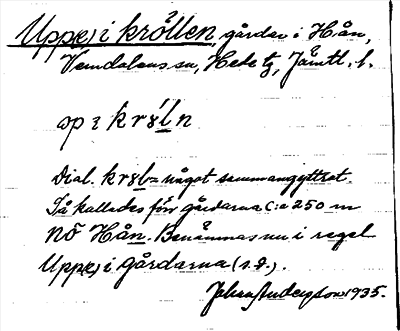 Upp(e) i krållen, gårdar i Hån,
Vemdalens sn, Hede tg, Jämtl. l.
op i kr l n
Dial. = något sammangyttrat.
Så kallades för gårdarna c:a 250 m
NÖ Hån. Benämnas nu i regel
Upp(e) i gårdarna (s.d.).
Johan Anderson 1935.